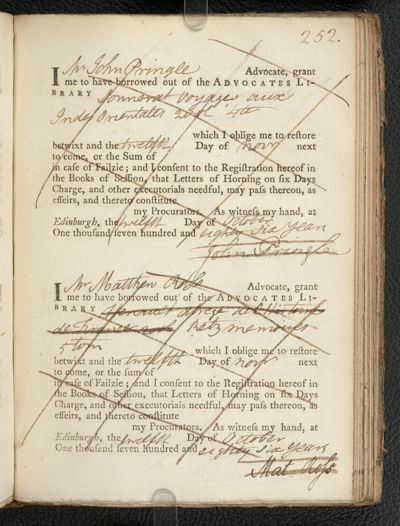 252.
I Mr John Pringle Advocate, grant
me to have borrowed out of the ADVOCATES LI-
BRARY Sonnerat Voyages aux
Indes Orientales 2 4to
which I oblige me to reſtore
betwixt and the twelfth Day of Novr next
to come, or the Sum of
in caſe of Failzie; and I conſent to the Regiſtration hereof in
the Books of Seſſion, that Letters of Horning on ſix Days
Charge, and other executorials needful, may paſs thereon, as
effeirs, and thereto conſtitute
my Procurators. As witneſs my hand, at
Edinburgh, the twelfth Day of October
One thouſand ſeven hundred and eighty Six Years
John Pringle
I Mr Matthew Roſs Advocate, grant
me to have borrowed out of the ADVOCATES LI-
BRARY de l'Histoire
de Retz memoirs
5 tom
which I oblige me to reſtore
betwixt and the twelfth Day of Novr next
to come, or the ſum of
in caſe of Failzie; and I conſent to the Regiſtration hereof in
the Books of Seſſion, that Letters of Horning on ſix Days
Charge, and other executorials needful, may paſs thereon, as
effeirs, and thereto conſtitute
my Procurators. As witneſs my hand, at
Edinburgh, the twelfth Day of October
One thouſand ſeven hundred and eighty Six Years
Mat Roſs